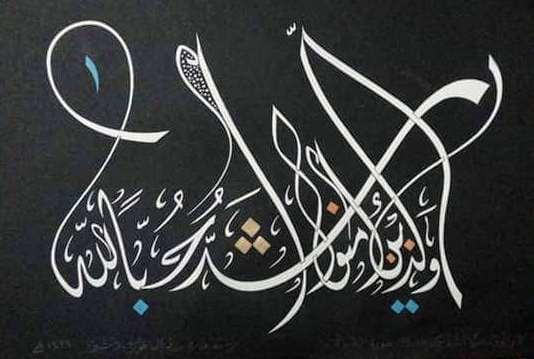 والذين آمنوا أشد حبا لله